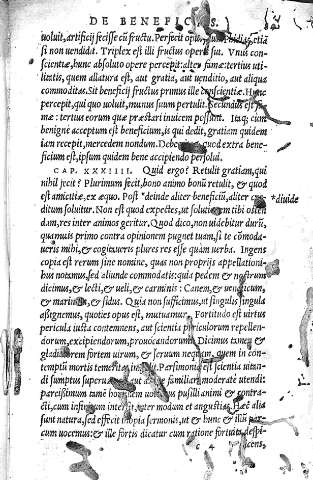 DE BENEFICIIS.
uoluit, artificij fecisse cū fructu. Perfecit opus suum Phidias, etiā
si non uendidat. Triplex est illi fructus operis sui. Vnus con-
scientiæ, hunc absoluto opere percepit: alter famæ: tertius uti-
litatis, quem allatura est, aut gratia, aut uenditio, aut aliqua
commoditas. Sic beneficij fructus primus ille conscientiæ. Hunc
percepit, qui quo uoluit, munus suum pertulit. Secundus est fa-
mæ: tertius eorum quæ præstari inuicem possunt. Itaq; cum
benigne acceptum est beneficium, is qui dedit, gratiam quidem
iam recepit, mercedem nondum. Debeo quod extra bene-
ficium est, ipsum quidem bene accipiendo persolui.
CAP. XXXIIII. Quid ergo? Retulit gratiam, qui
nihil fecit? Plurimum fecit, bono animo bonū retulit, & quod
est amicitiæ, ex æquo. Post *deinde aliter beneficiū, aliter cre-
*diuide
ditum soluitur. Non est quod expectes, ut solutionem tibi osten-
dam, res inter animos geritur. Quod dico, non uidebitur durū,
quamuis primo contra opinionem pugnet tuam, si te cōmoda-
ueris mihi, & cogitaueris plures res esse quàm uerba. Ingens
copia est rerum sine nomine, quas non proprijs appellationi-
bus notamus, sed alienis commodatis: quia pedem & nostrum
dicimus, & lecti, & ueli, & carminis: Canem, & uenaticum,
& marinum, & sidus. Quia non sufficimus, ut singulis singula
assignemus, quoties opus est, mutuamur. Fortitudo est uirtus
pericula iusta contemnens, aut scientia periculorum repellen-
dorum, excipiendorum, prouocandorum. Dicimus tamen &
gladiatorem fortem uirum, & seruum nequam, quem in con-
temptū mortis temeritas impulit. Parsimonia est scientia uitan-
di sumptus superuacuos, aut ars re familiari moderate utendi:
parcissimum tamē hominem uocamus pusilli animi & contra-
cti, cum infinitum intersit inter modum et angustias. Hæc alia
sunt natura, sed effecit inopia sermonis, ut & hunc & illum par-
cum uocemus: & ille fortis dicatur cum ratione fortuita despi-
c 4 ciens,